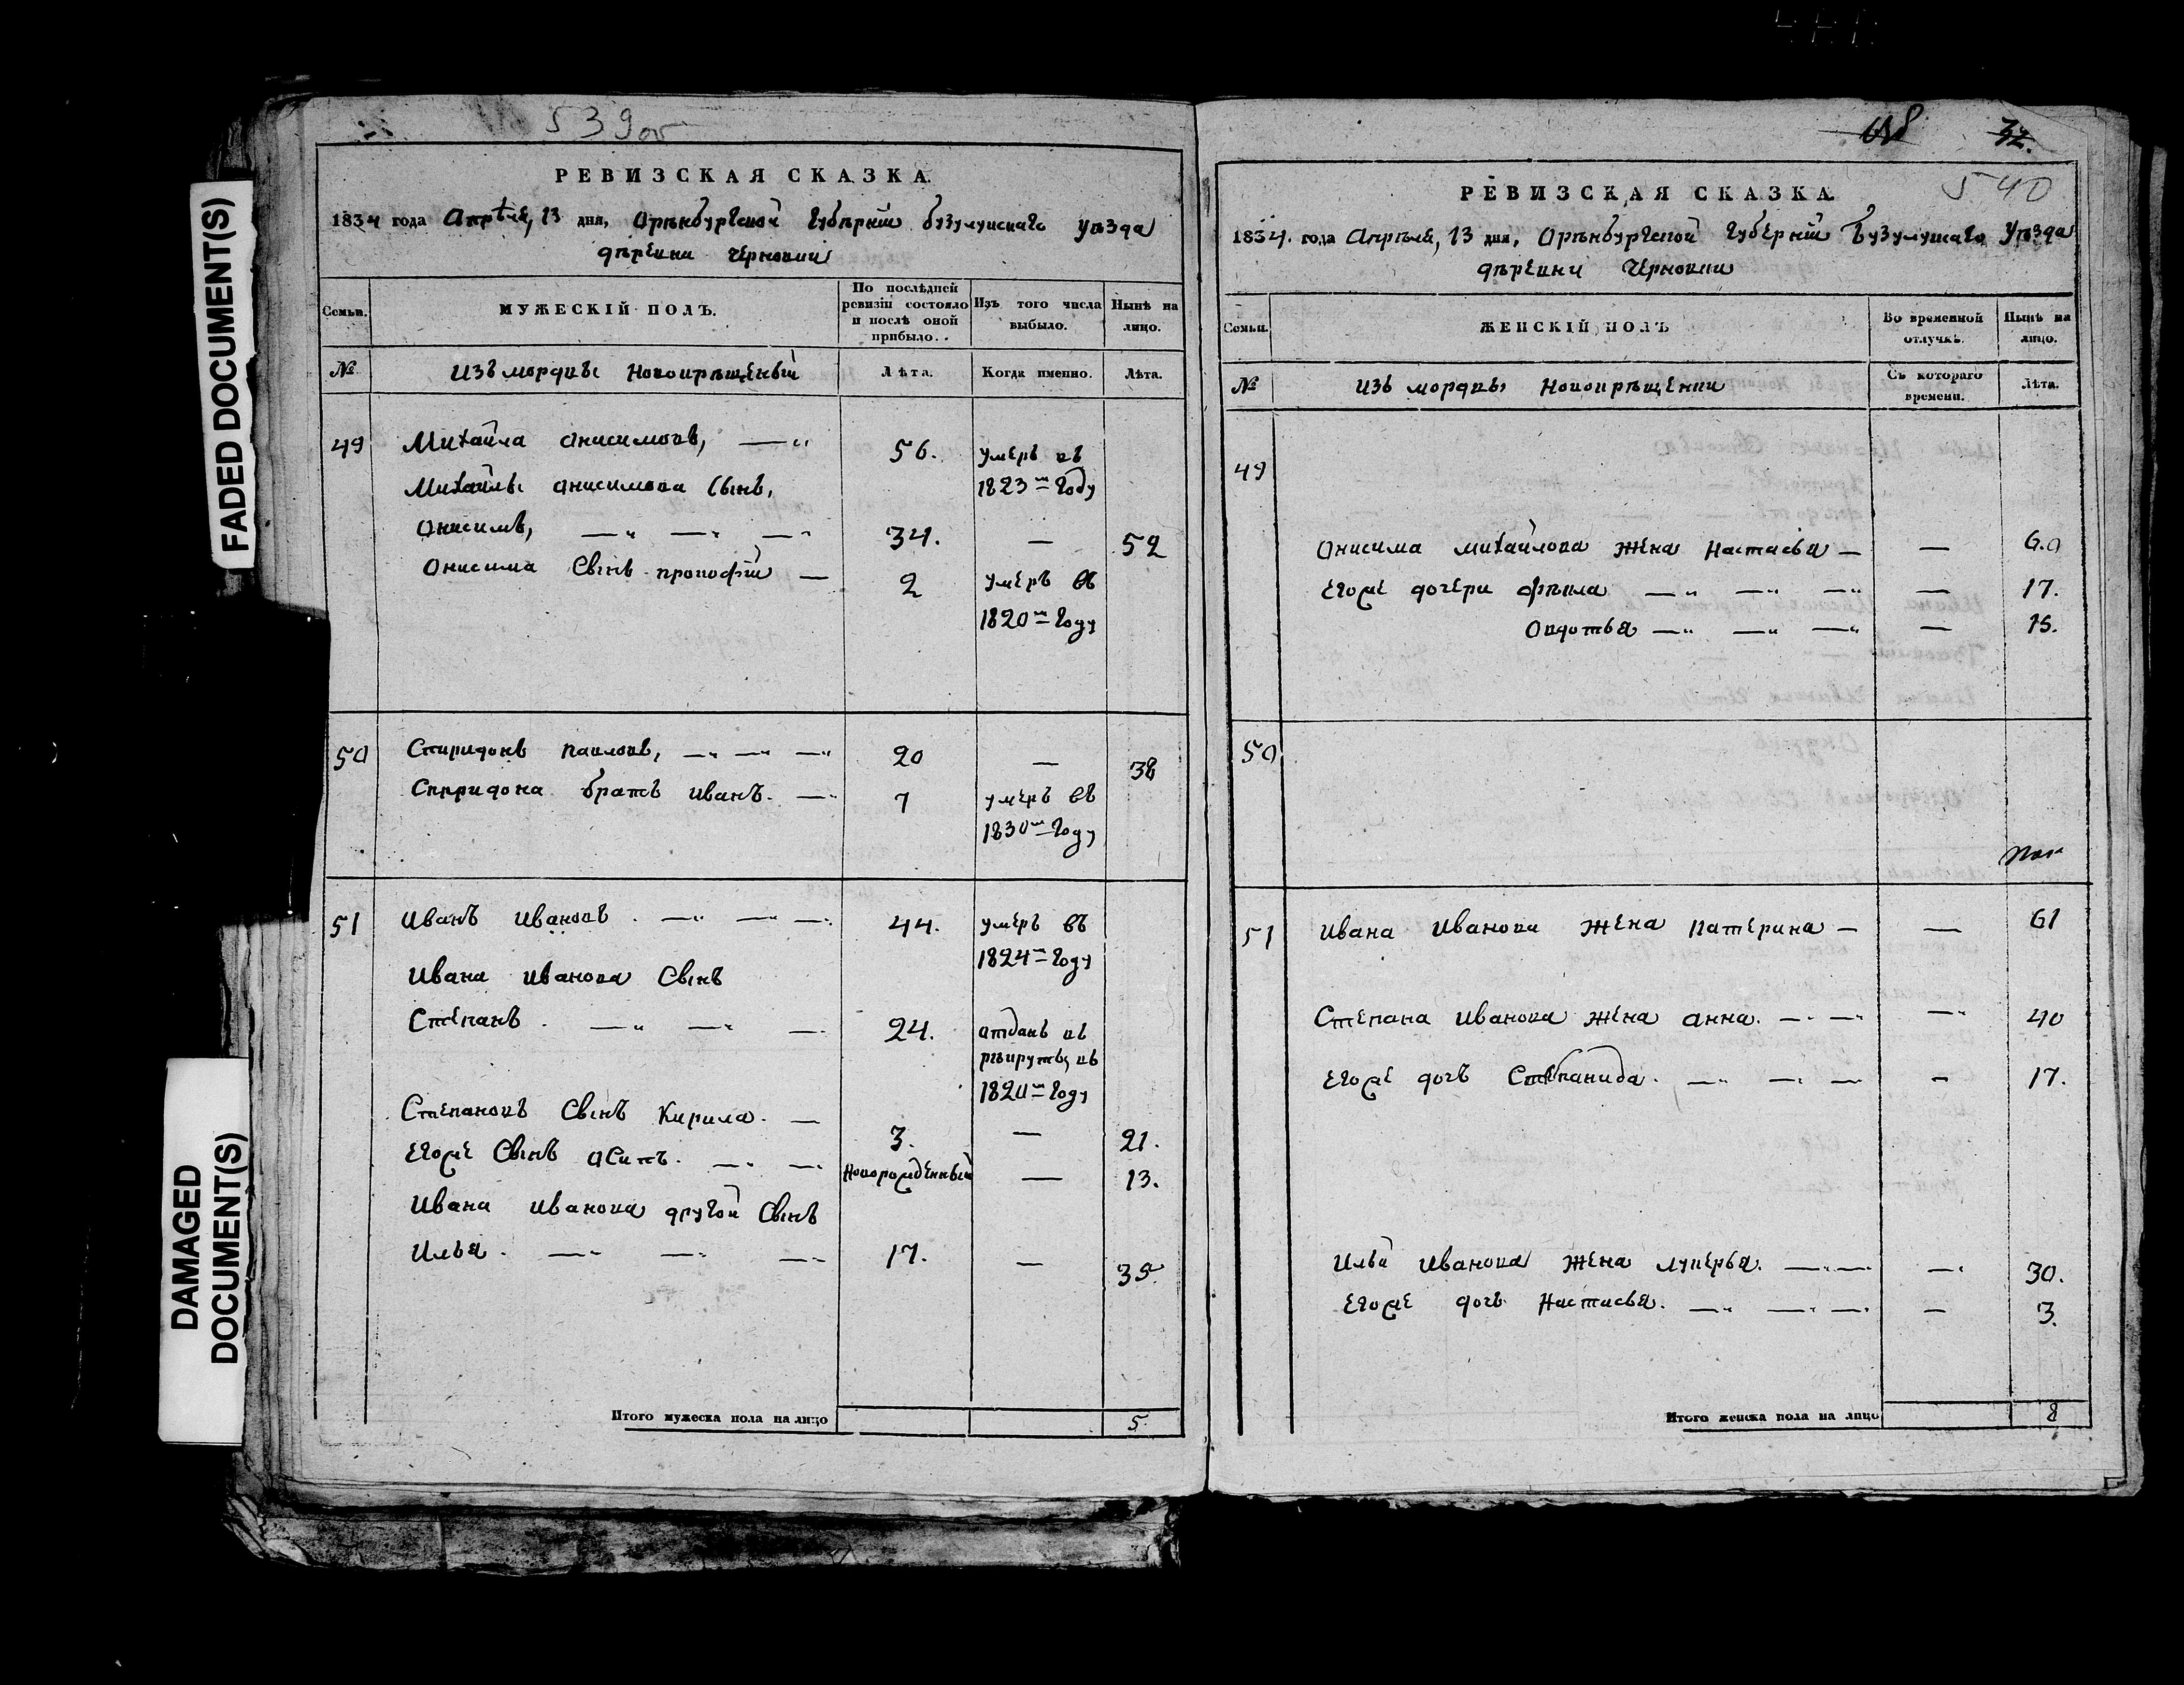 FADED DOCUMENT(S)
DAMAGED
DOCUMENT(S)
539об
РЕВИЗСКАЯ СКАЗКА.
1834 года Апрѣля, 13 дня, Орѣнбургской Губѣрніи бузулускаго уѣзда
дѣрѣвни черновки
Семьи.
МУЖЕСКІЙ ПОЛЪ.
По послѣдней
ревизіи состояло
и послѣ оной
прибыло.
Изъ того числа
выбыло.
Нынѣ на
лицо.
№
Изъ мордвы новокрѣщеный
Лѣта.
Когда именно.
Лѣта.
49 Михайла анисимовъ, 56. умеръ въ
Михайлы анисимова Сынъ, 1823 году
Онисимъ, 34. — 52
Онисима Сынъ прокофій — 2 умеръ въ
1820 году
50 Спиридонъ павловъ, 20 — 38
Спиридона братъ иванъ. 7 умеръ въ
1830 году
51 Иванъ Ивановъ. 44. умеръ въ
1824 году
Ивана иванова Сынъ
Степанъ. 24. отданъ въ
рѣкруты въ
1820 году
Степановъ Сынъ Кирила. — 3. — 21.
Егоже Сынъ осипъ. новорожденный — 13.
Ивана иванова другой Сынъ
Илья. 17. — 35.
Итого мужеска пола на лицо 5.
32.
540
РЕВИЗСКАЯ СКАЗКА.
1834. года Апрѣля, 13 дня, Орѣнбургской губерніи Бузулускаго Уѣзда
дѣрѣвни черновки
Семьи.
ЖЕНСКІЙ ПОЛЪ
Во временной
отлучкѣ.
Нынѣ на
лицо.
№
Изъ мордвы новокрѣщенки
Съ котораго
времени.
Лѣта.
49
Онисима михайлова жена настасья — — 60
Егоже дочери фѣкла — 17.
Овдотья — 15.
50
51 Ивана Иванова жена катерина — — 61
Степана иванова жена анна. — 40
Егоже дочь Степанида. — 17.
Ильи иванова жена лукерья. — 30.
Егоже дочь настасья. — 3.
Итого женска пола на лицо 8